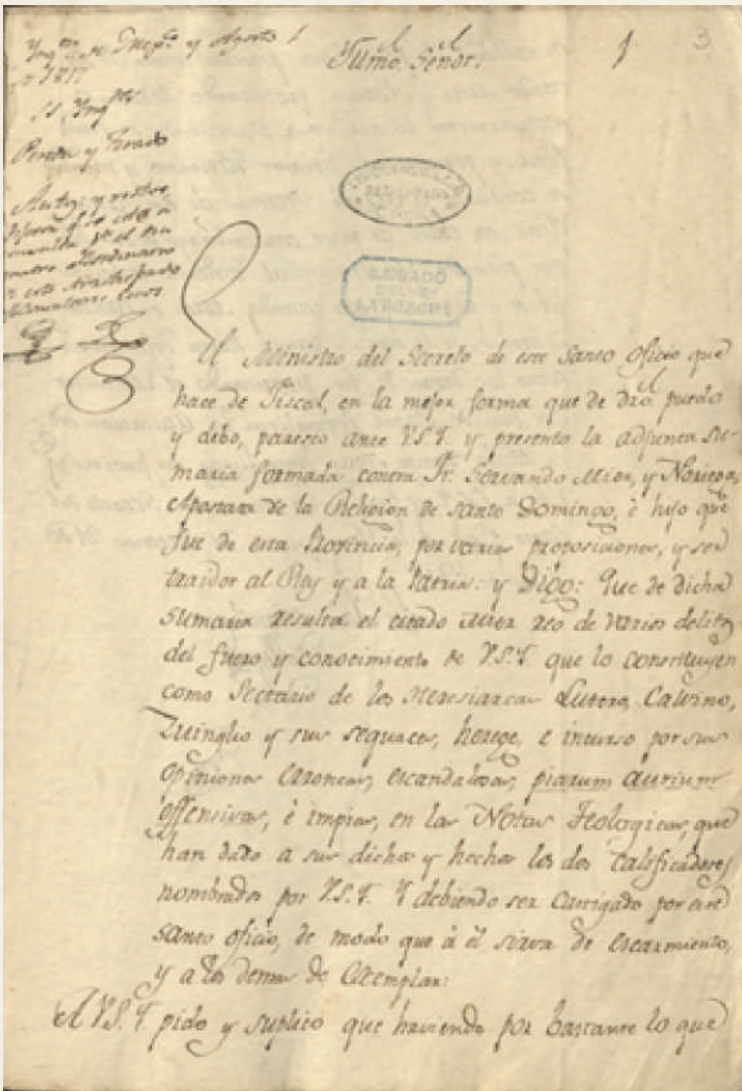 Ynqon de Mexco y Agosto 1
de 1817
SS. Ynqres
Pereda y Tirado
Autos, y
Yllmo. Señor.
1
3
El Ministro del Secreto de este Santo Oficio que
hace de Fiscal, en la mejor forma que de dro. puedo
y debo, paresco ante V.S.Y. y presento la adjunta Su-
maria formada contra Fr. Servando Mier, y Noriega,
Apostata de la Religion de Santo Domingo, è hijo que
fue de esta Provincia, por varias proposiciones, y ser
traidor al Rey y a la Patria: y Digo: Que de dicha
Sumaria resulta el citado Mier reo de varios delitos
del fuero y conocimiento de V.S.Y. que lo constituyen
como Sectario de los Heresiarcas Lutero, Calvino,
Zuinglio y sus sequaces, herege, è incurso por sus
opiniones erroneas, escandalosas, piarum aurium
offensivas, è impias, en las Notas Teologicas, que
han dado a sus dichos y hechos los dos Calificadores
nombrados por V.S.Y. Y debiendo ser castigado por este
Santo Oficio, de modo que à èl sirva de escarmiento,
y a los demas de Exemplar:
A V.S.Y. pido y suplico que haviendo por bastante lo que